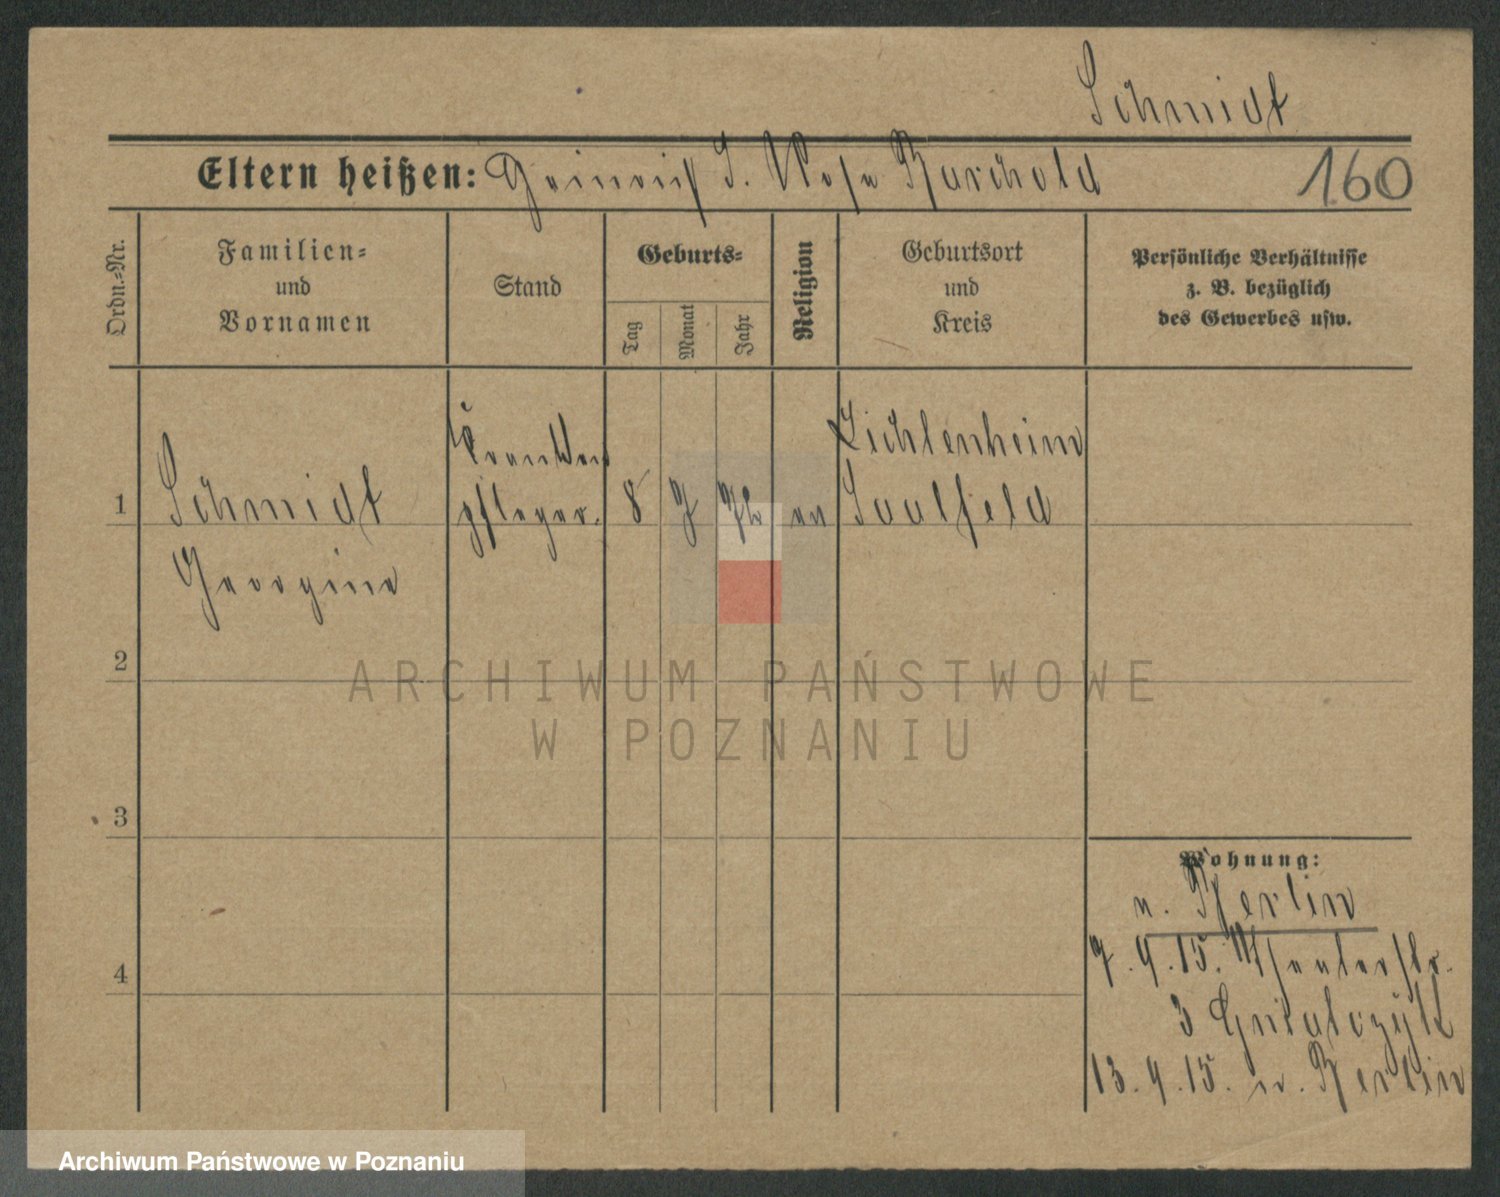 Schmidt
Eltern heißen: Heinrich J. Rosa Barchold
160
Ordn.-Nr.
Familien-
und
Vornamen
Stand
Geburts-
Tag
Monat
Jahr
Religion
Geburtsort
und
Kreis
Persönliche Verhältnisse
z. B. bezüglich
des Gewerbes usw.
1
Schmidt
Georgine
Kranken
pfleger.
8
ev
Lichtenheim
Saalfeld
2
3
4
Wohnung:
n. Berlin
9.15.
3
13.9.15. n. Berlin
ARCHIWUM PAŃSTWOWE
W POZNANIU
Archiwum Państwowe w Poznaniu